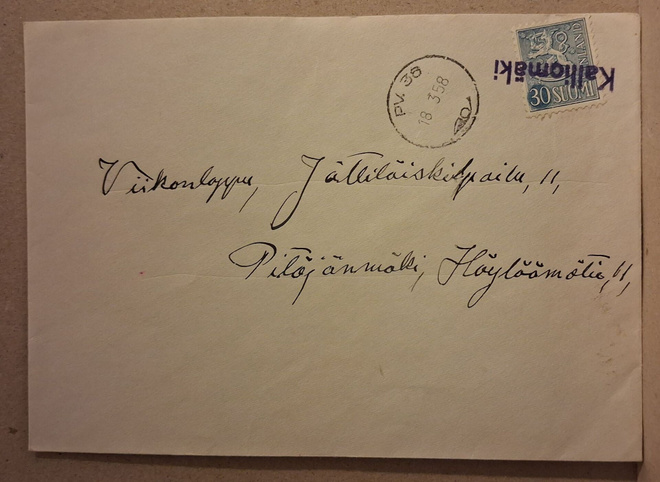 PV. 36
18 3 58
Kalliomäki
30 SUOMI
FINLAND
Viikonloppu, Jättiläiskilpailu, 11,
Pitäjänmäki, Höylöämötie, 11,